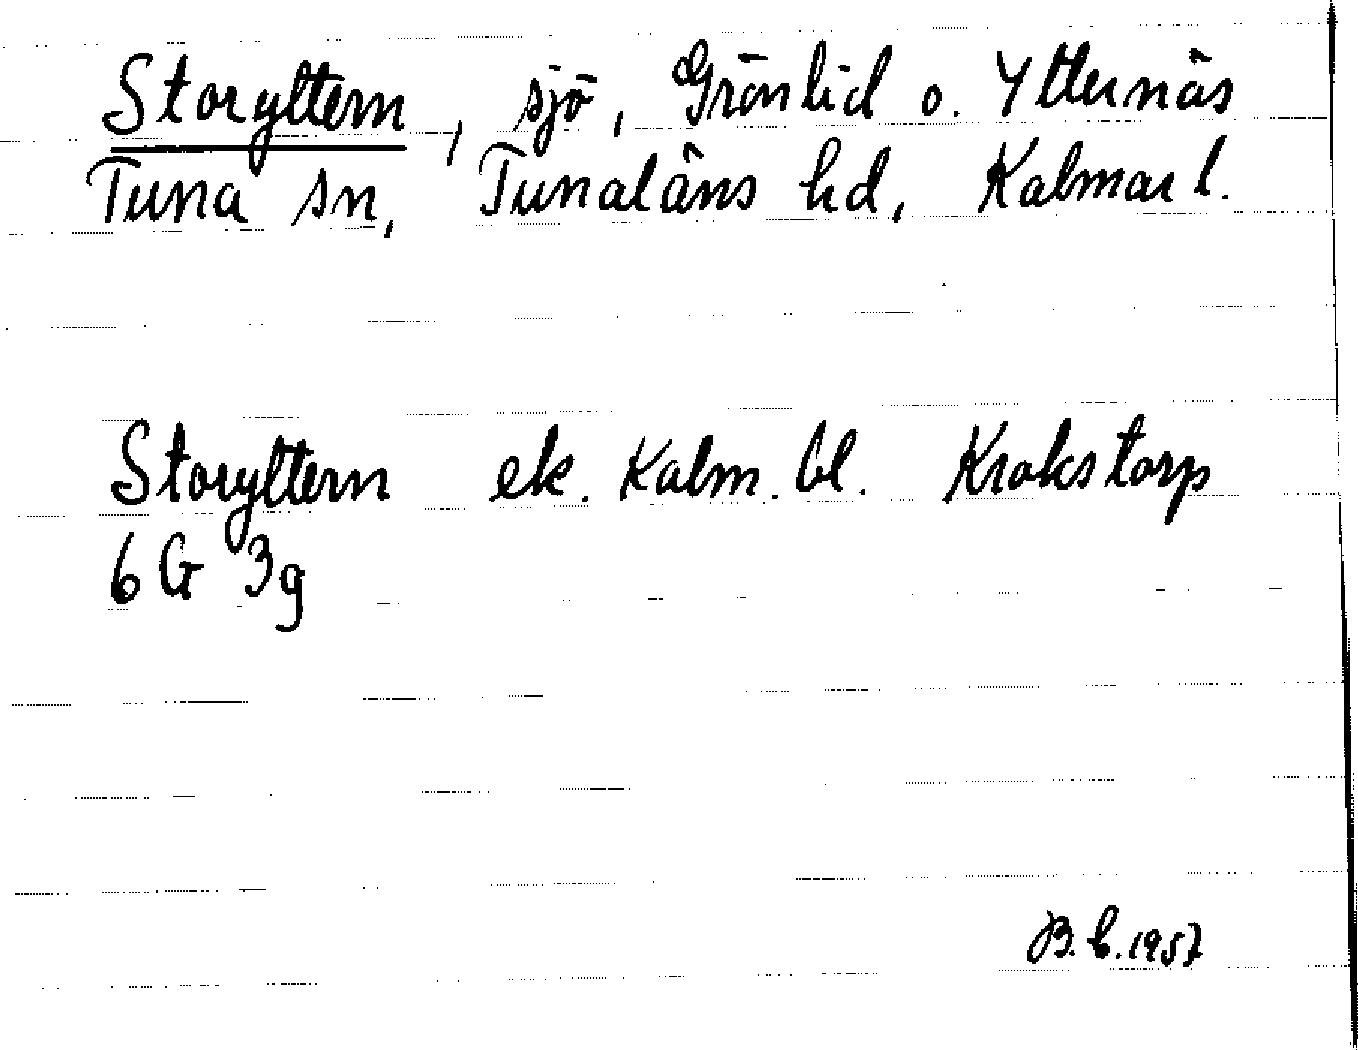 Storyttern, sjö, Grönlid o. Ytternäs
Tuna sn, Tunaläns hd, Kalmar l.
Storyttern ek. Kalm. bl. Krokstorp
6G 3g
B.E. 1957